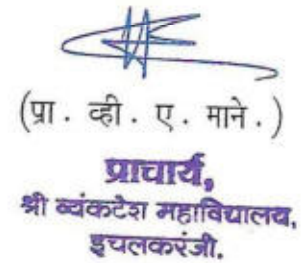 (प्रा. व्ही. ए. माने.)
प्राचार्य,
श्री व्यंकटेश महाविद्यालय,
इचलकरंजी.